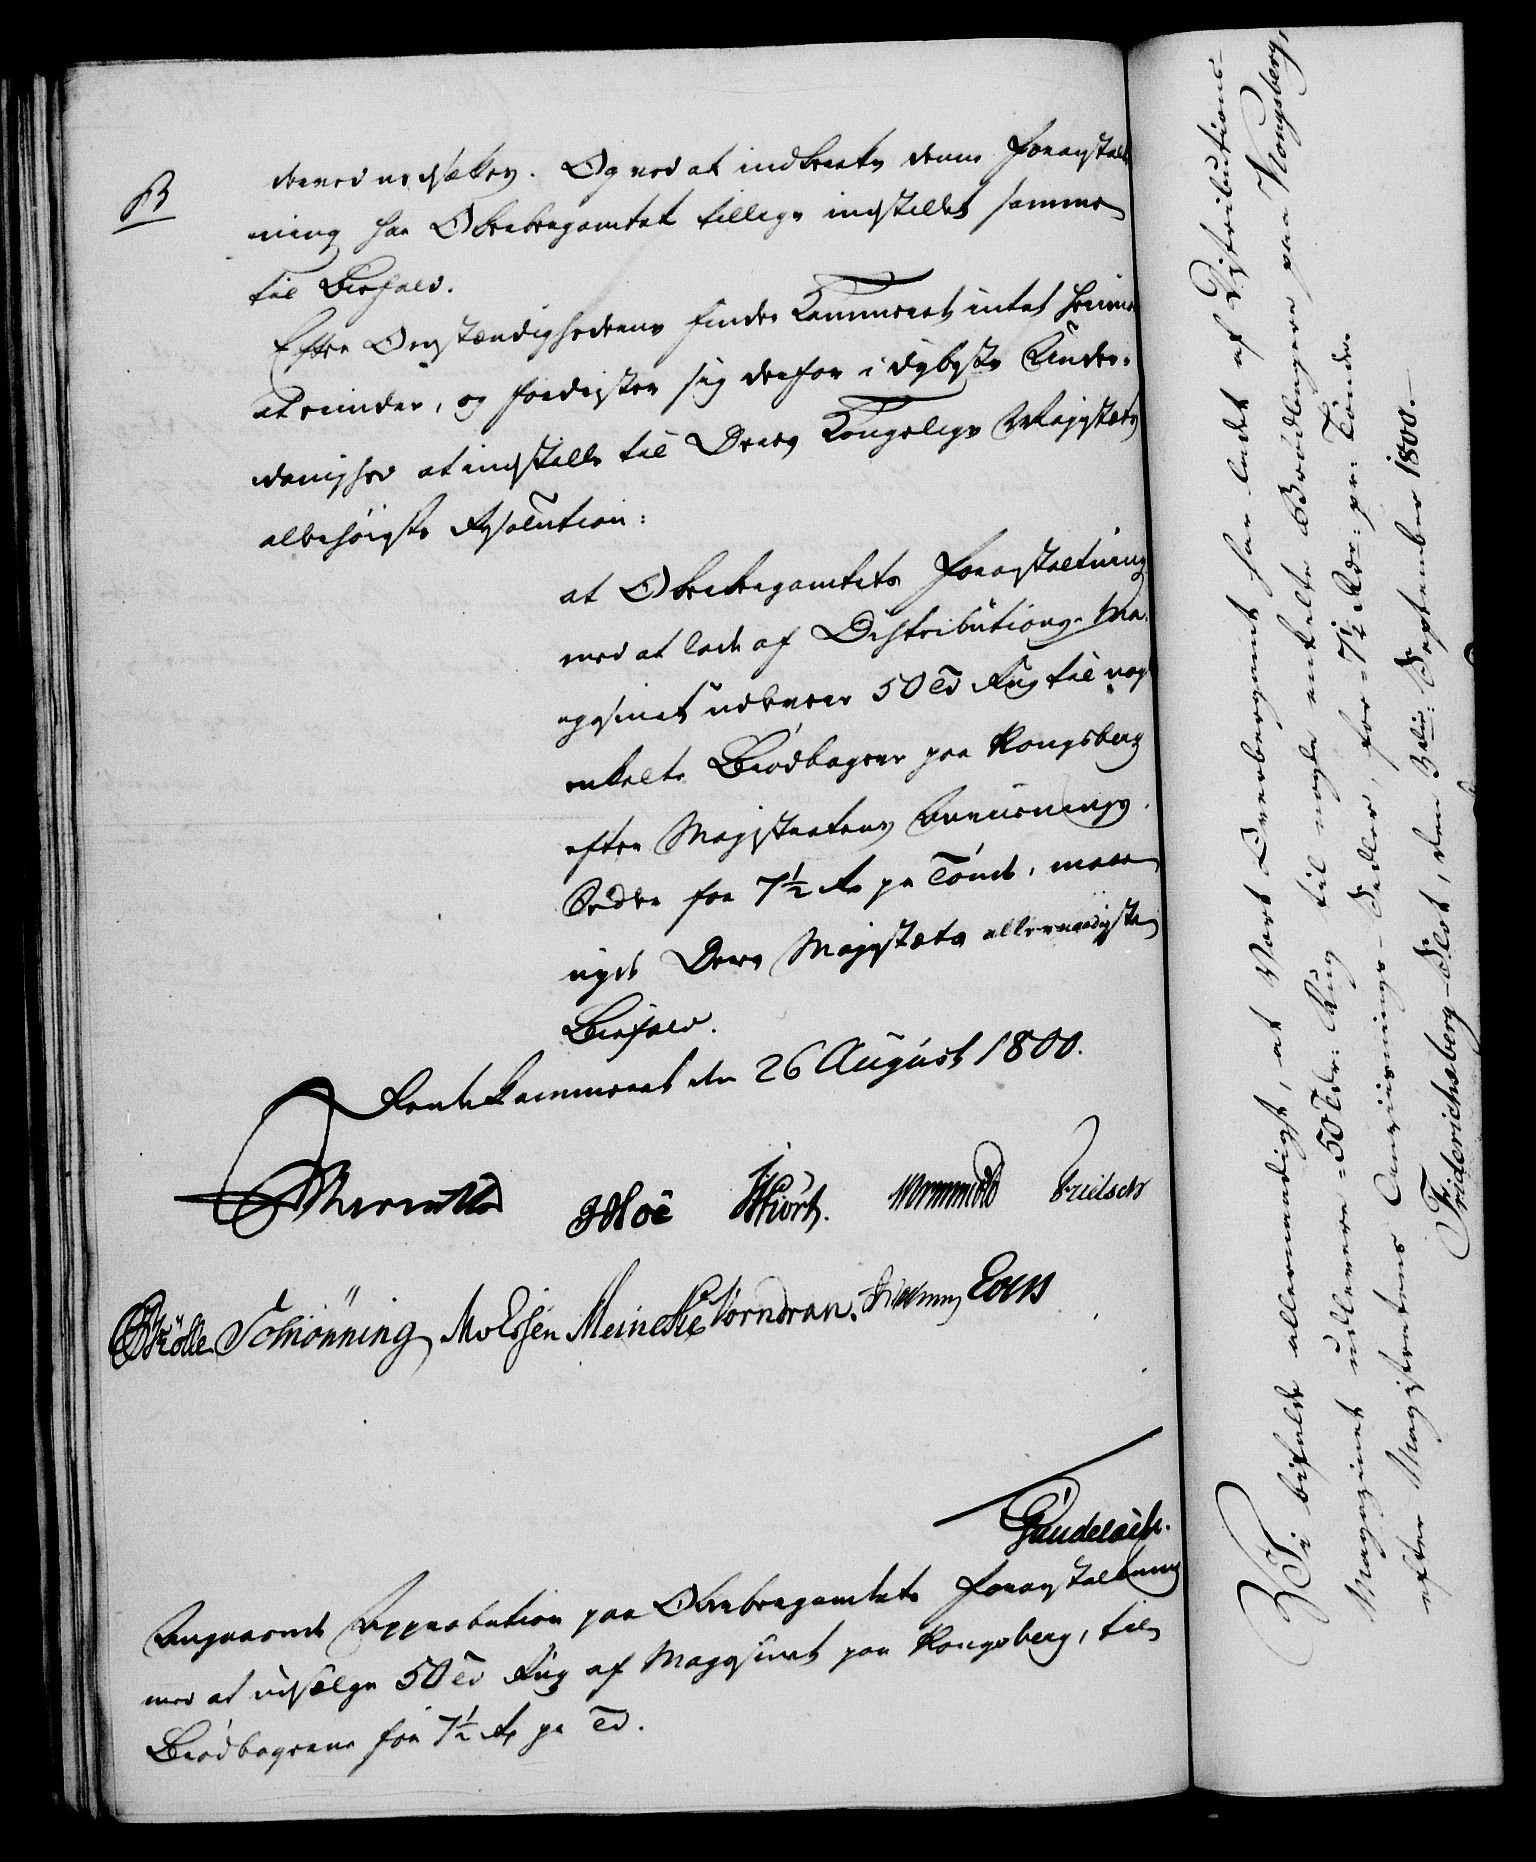 B
derved udsættes. Og ved at indberette denne Foranstalt-
ning har Oberbergamtet tillige indstillet samme
til Bifald.
Efter Omstændighederne finder Kammeret intet herimod
at erindre, og fordrister sig derfor i dybeste Under-
danighed at indstille til Deres Kongelige Majestæts
allerhøieste Resolution:
at Oberbergamtets Foranstaltning
med at lade af Distributions-Ma-
gazinet udlevere 50 Td Rug til nogle
enkelte Brødbagere paa Kongsberg
efter Magistratens Anviisnings-
Sedler for 7½ Rd pr Tønde, maae
nyde Deres Majestæts allernaadigste
Bifald.
Rentekammeret den 26 August 1800.
Reventlow JHoë Hiort. Wormskiold Fritsch
Kölle Schiönning MvEssen Meincke Vorndran. Evers
Gundelach.
Angaaende Approbation paa Oberbergamtets Foranstaltning
med at udsælge 50 Td Rug af Magazinet paa Kongsberg, til
Brødbagerne for 7½ Rd pr Td.
Vi bifalde allernaadigst, at Vort Overbergamt har ladet af Distributions-
Magazinet udlevere =50 Tdr: Rug til nogle enkelte Brødbagere paa Kongsberg,
efter Magistratens Anviisnings-Sedler, for =7½ Rdr: pr: Tønde
Friderichsberg-Slot, den 3die September 1800.